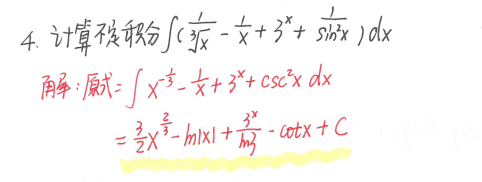 4. 计算不定积分∫(1/∛x - 1/x + 3^x + 1/sin²x)dx
解:原式=∫x^(-1/3) - 1/x + 3^x + csc²x dx
= 3/2 x^(2/3) - ln|x| + 3^x/ln3 - cotx + C